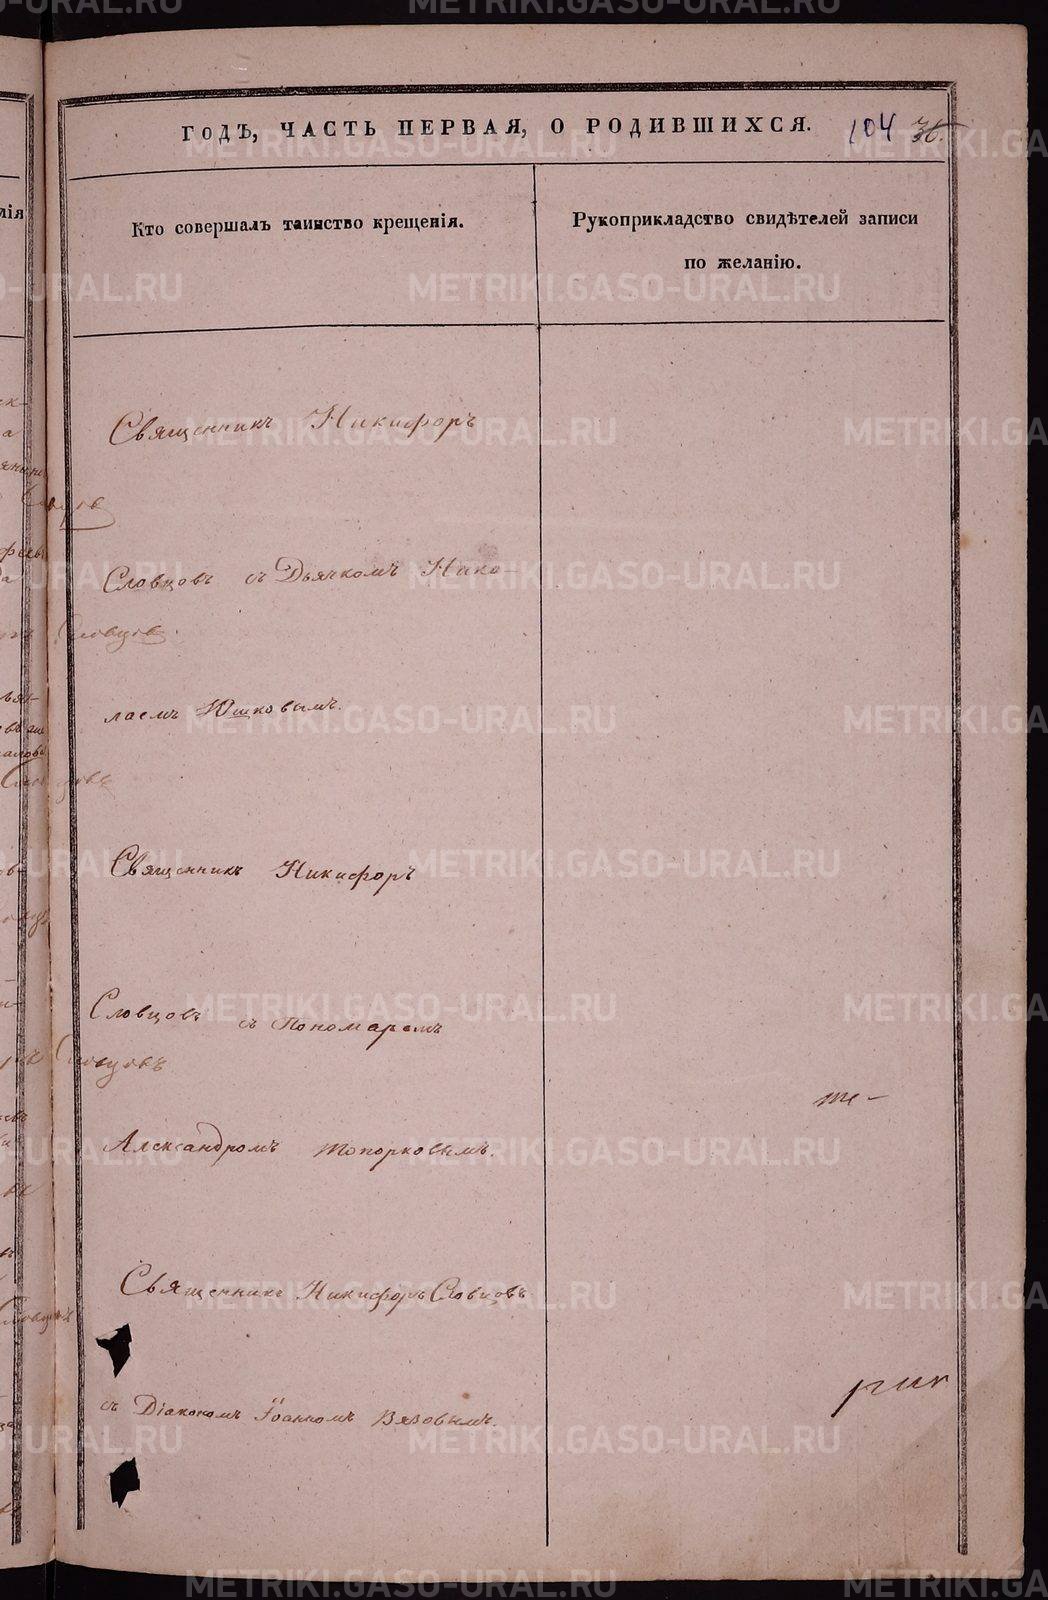 ГОДЪ, ЧАСТЬ ПЕРВАЯ, О РОДИВШИХСЯ. 104 36.
Кто совершалъ таинство крещенія.
Рукоприкладство свидѣтелей записи
по желанію.
Священникъ Никифоръ
Словцовъ съ Дьячкомъ Нико-
лаемъ Юшковымъ.
Священникъ Никифоръ
Словцовъ съ Пономаремъ
Александромъ Топорковымъ.
Священникъ Никифоръ Словцовъ
съ Діакономъ Іоанномъ Вязовымъ.
Словцовъ
Словцовъ.
Словцовъ
Словцовъ
METRIKI.GASO-URAL.RU